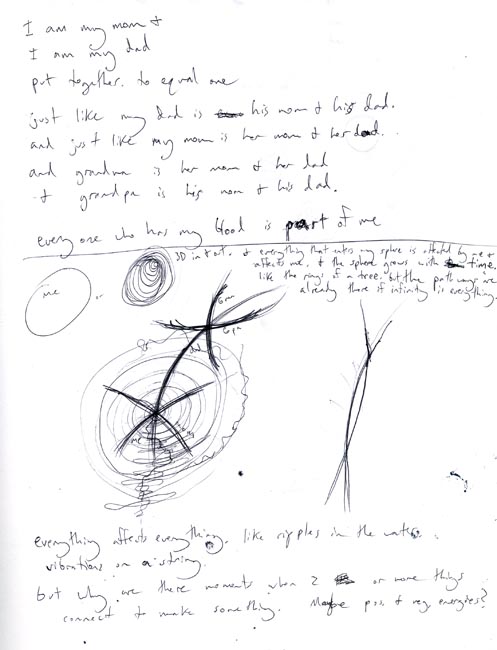 I am my mom &
I am my dad
put together. to equal one
just like my dad is his mom & his dad.
and just like my mom is her mom & her dad.
and grandma is her mom & her dad
& grandpa is his mom & his dad.
everyone who has my blood is part of me
me
or
3D in & out. & everything that enters my sphere is affected by me &
affects me. & the sphere grows with time.
like the rings of a tree. but the pathways are
already there if infinity is everything.
Gma
Gpa
dad
me
everything affects everything. like ripples in the water.
vibrations on a string.
but why are there moments when 2 or more things
connect to make something. Maybe pos. & neg. energies?